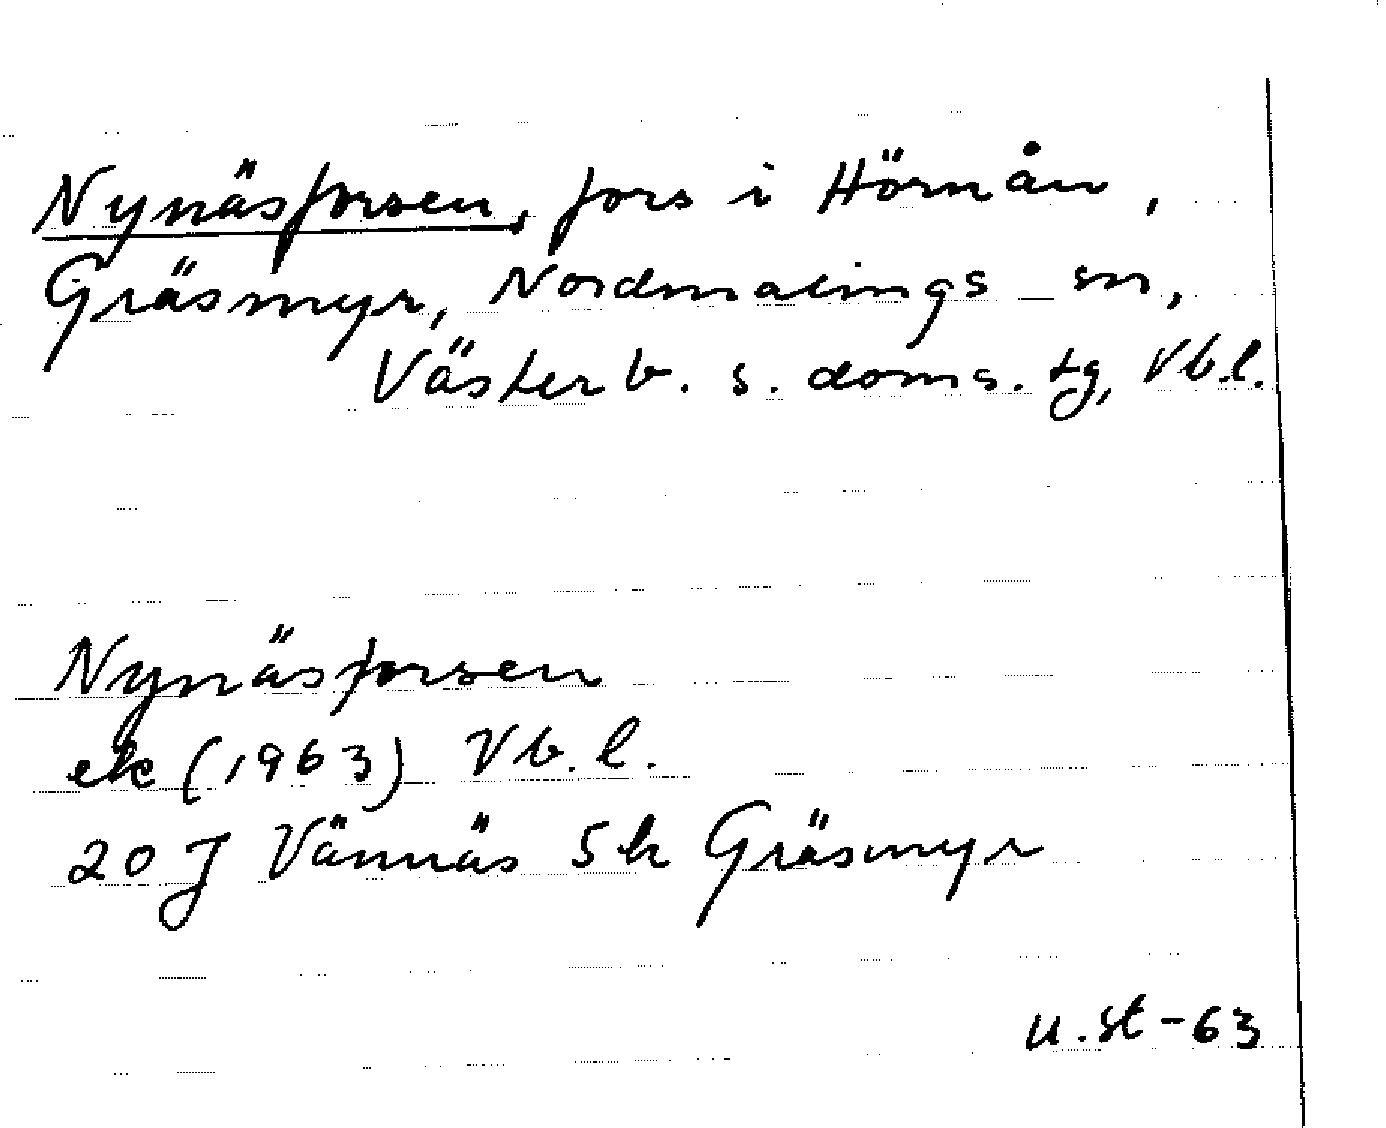 Nynäsforsen, fors i Hörnån,
Gräsmyr, Nordmalings sn,
Västerb. s. doms. tg, Vb.l.
Nynäsforsen
ek (1963) Vb.l.
20 J Vännäs 5 h Gräsmyr
u.st-63